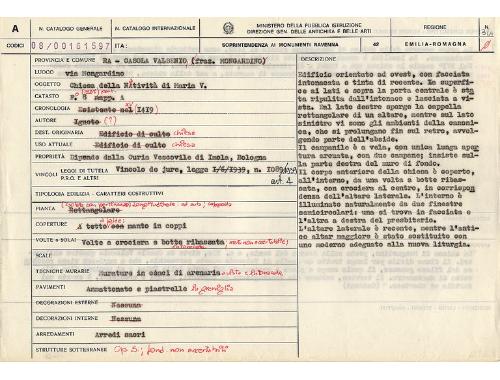 A
N. CATALOGO GENERALE
N. CATALOGO INTERNAZIONALE
MINISTERO DELLA PUBBLICA ISTRUZIONE
DIREZIONE GEN. DELLE ANTICHITÀ E BELLE ARTI
REGIONE
N.
CODICI
08/00161597
ITA:
SOPRINTENDENZA AI MONUMENTI RAVENNA
42
EMILIA-ROMAGNA
PROVINCIA E COMUNE: RA - CASOLA VALSENIO (fraz. MONGARDINO)
LUOGO via Mongardino
OGGETTO Chiesa della Natività di Maria V.
CATASTO F. 8 mapp. A
CRONOLOGIA Esistente nel 1419
AUTORE Ignoto (?)
DEST. ORIGINARIA Edificio di culto chiesa
USO ATTUALE Edificio di culto chiesa
PROPRIETÀ Dipende dalla Curia Vescovile di Imola, Bologna
VINCOLI LEGGI DI TUTELA Vincolo de jure, legge 1/6/1939, n. 1089
P.R.G. E ALTRI art. 4
TIPOLOGIA EDILIZIA - CARATTERI COSTRUTTIVI
PIANTA Rettangolare
COPERTURE A tetto con manto in coppi
VOLTE o SOLAI Volte a crociera a botte ribassata
SCALE
TECNICHE MURARIE Murature in conci di arenaria
PAVIMENTI Ammattonato e piastrelle
DECORAZIONI ESTERNE Nessuna
DECORAZIONI INTERNE Nessuna
ARREDAMENTI Arredi sacri
STRUTTURE SOTTERRANEE
DESCRIZIONE:
Edificio orientato ad ovest, con facciata
intonacata e tinta recentemente. La superfi-
ce ai lati e sopra la porta centrale è sta
ta ripulita dall'intonaco e lasciata a vi-
sta. Dal lato destro sporge la cappella
rettangolare di un altare, mentre sul lato
sinistro vi sono gli ambienti della canoni-
ca, che si prolungano fin sul retro, avvol-
gendo parte dell'abside.
Il campanile è a vela, con unica lunga aper
tura arcuata, con due campane; insiste sul-
la parte destra del muro di fondo.
Il corpo anteriore della chiesa è coperto,
all'interno, da una volta a botte ribas-
sata, con crociera al centro, in corrispon
denza dell'altare laterale. L'interno è
illuminato naturalmente da due finestre
semicircolari: una si trova in facciata e
l'altra a destra del presbiterio.
L'altare laterale è recente, mentre l'anti-
co altar maggiore è stato sostituito con
uno moderno adeguato alla nuova liturgia.